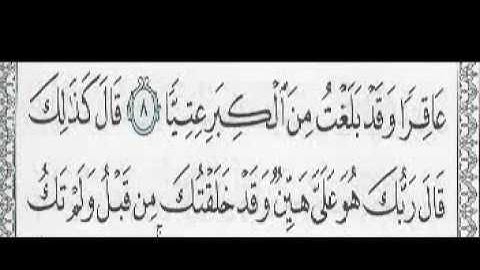 عَاقِرًا وَقَدْ بَلَغْتُ مِنَ ٱلْكِبَرِ عِتِيًّا ٨ قَالَ كَذَٰلِكَ
قَالَ رَبُّكَ هُوَ عَلَىَّ هَيِّنٌ وَقَدْ خَلَقْتُكَ مِن قَبْلُ وَلَمْ تَكُ